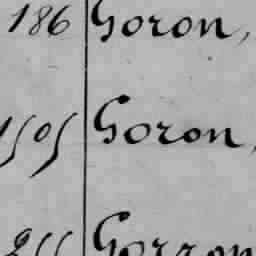 186 Goron,
1505 Goron,
255 Gorron